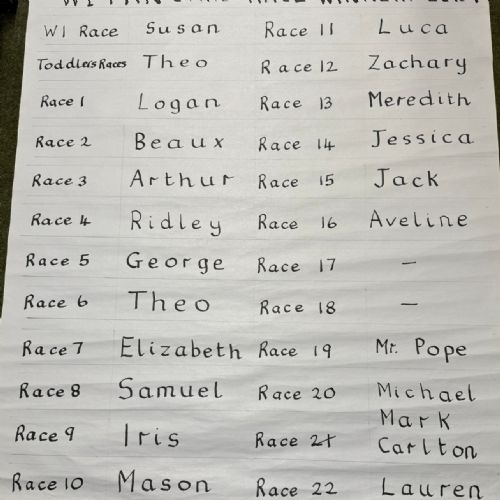 WI Race Susan Race 11 Luca
Toddlers Races Theo Race 12 Zachary
Race 1 Logan Race 13 Meredith
Race 2 Beaux Race 14 Jessica
Race 3 Arthur Race 15 Jack
Race 4 Ridley Race 16 Aveline
Race 5 George Race 17 —
Race 6 Theo Race 18 —
Race 7 Elizabeth Race 19 Mr. Pope
Race 8 Samuel Race 20 Michael
Race 9 Iris Race 21 Mark
Carlton
Race 10 Mason Race 22 Lauren